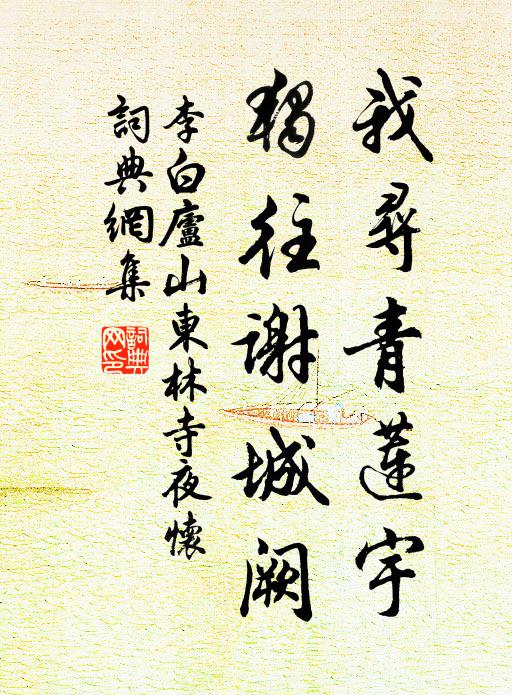 我尋青蓮宇
獨往謝城闕
李白廬山東林寺夜懷
詞典網集
詞典
网印